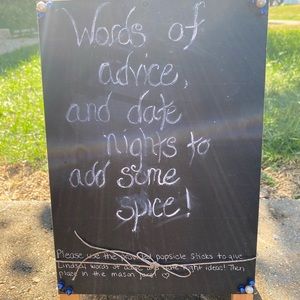 Words of
advice,
and date
nights to
add some
spice!
Please use the painted popsicle sticks to give
Lindsay words of advice and date night ideas! Then
place in the mason jar! ♡